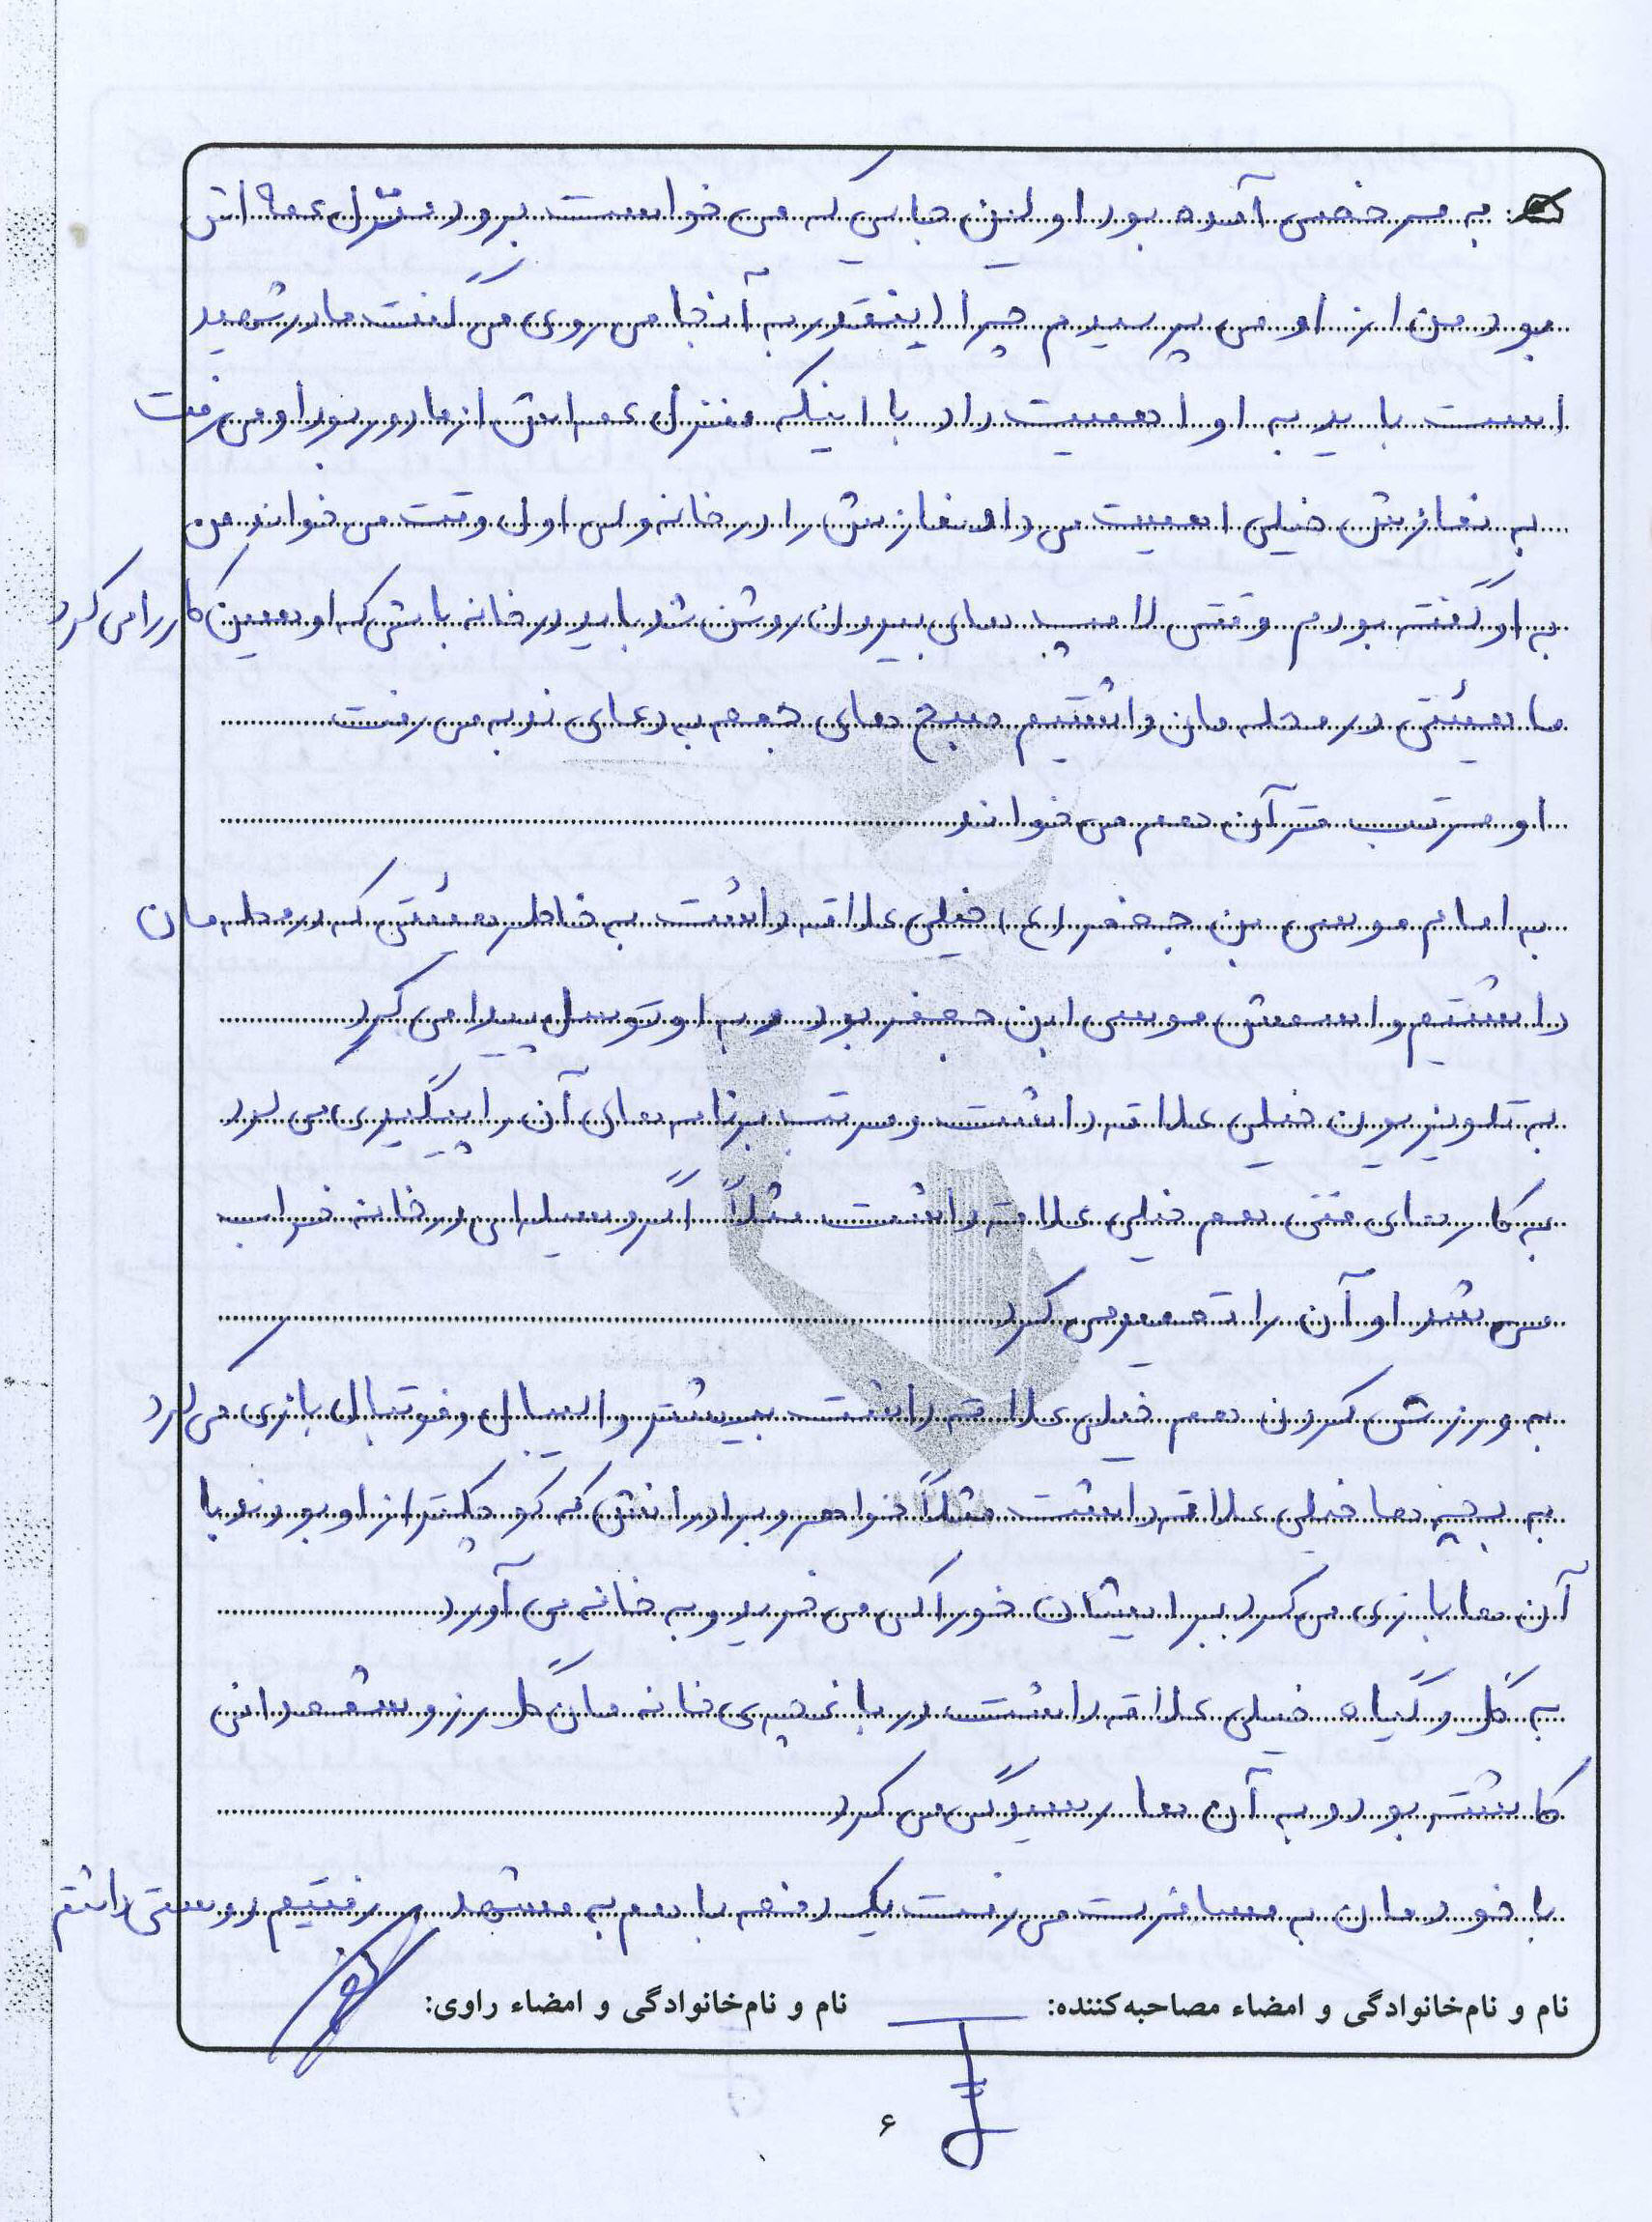 به مرخصی آمده بود اولین جایی که می خواست برود منزل عمه اش
بود من از او می پرسیدم چرا اینقدر به آنجا می روی می گفت مادر شهید
است باید به او اهمیت داد با اینکه منزل عمه اش از ما دور بود او می رفت
به نمازش خیلی اهمیت می داد نمازش را در خانه ولی اول وقت می خواند من
به او گفته بودم وقتی لامپ های بیرون روشن شد باید در خانه باشی که او همین کار را می کرد
ما هیئتی در محله مان داشتیم صبح های جمعه به دعای ندبه می رفت
او مرتب قرآن هم می خواند
به امام موسی بن جعفر (ع) خیلی علاقه داشت به خاطر هیئتی که در محله مان
داشتیم و اسمش موسی ابن جعفر بود و به او توسل پیدا می کرد
به تلویزیون خیلی علاقه داشت و مرتب برنامه های آن را پیگیری می کرد
به کارهای فنی هم خیلی علاقه داشت مثلاً اگر وسیله ای در خانه خراب
می شد او آن را تعمیر می کرد
به ورزش کردن هم خیلی علاقه داشت بیشتر والیبال و فوتبال بازی می کرد
به بچه ها خیلی علاقه داشت مثلاً خواهر و برادرانش که کوچکتر از او بودند با
آن ها بازی می کرد برایشان خوراکی می خرید و به خانه می آورد
به گل و گیاه خیلی علاقه داشت در باغچه ی خانه مان گل رز و شمعدانی
کاشته بود و به آن ها رسیدگی می کرد
با خودمان به مسافرت می رفت یک دفعه با هم به مشهد رفتیم دوستی داشتم
نام و نام‌خانوادگی و امضاء مصاحبه‌کننده: نام و نام‌خانوادگی و امضاء راوی:
۶